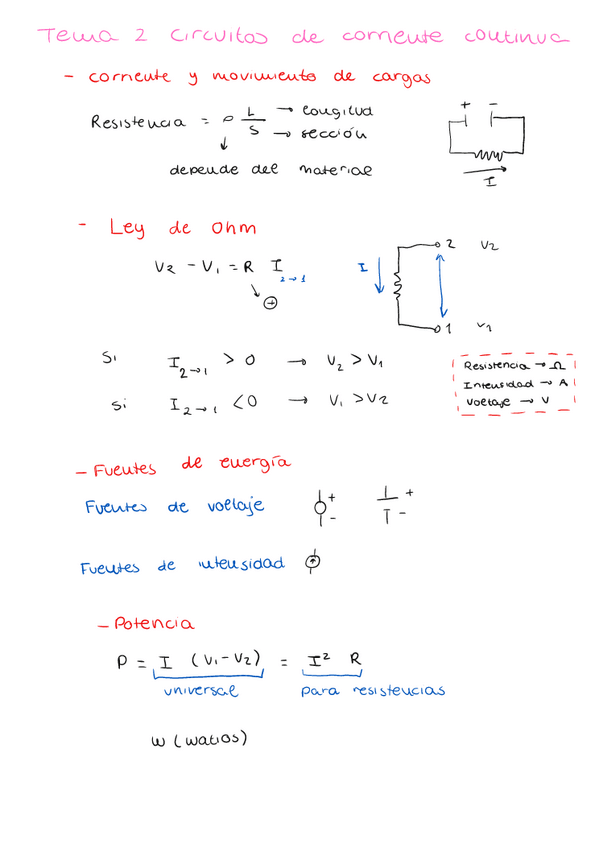 Tema 2 Circuitos de corriente continua
- corriente y movimiento de cargas
Resistencia = ρ L/S → longitud
→ sección
↓
depende del material
+ -
I
- Ley de Ohm
V2 - V1 = R I 2→1
⊕
I
2 V2
1 V1
Si I2→1 > 0 → V2 > V1
Si I2→1 < 0 → V1 > V2
Resistencia → Ω
Intensidad → A
Voltaje → V
- Fuentes de energía
Fuentes de voltaje + - + -
Fuentes de intensidad
- Potencia
P = I (V1 - V2) = I² R
universal para resistencias
W (watios)